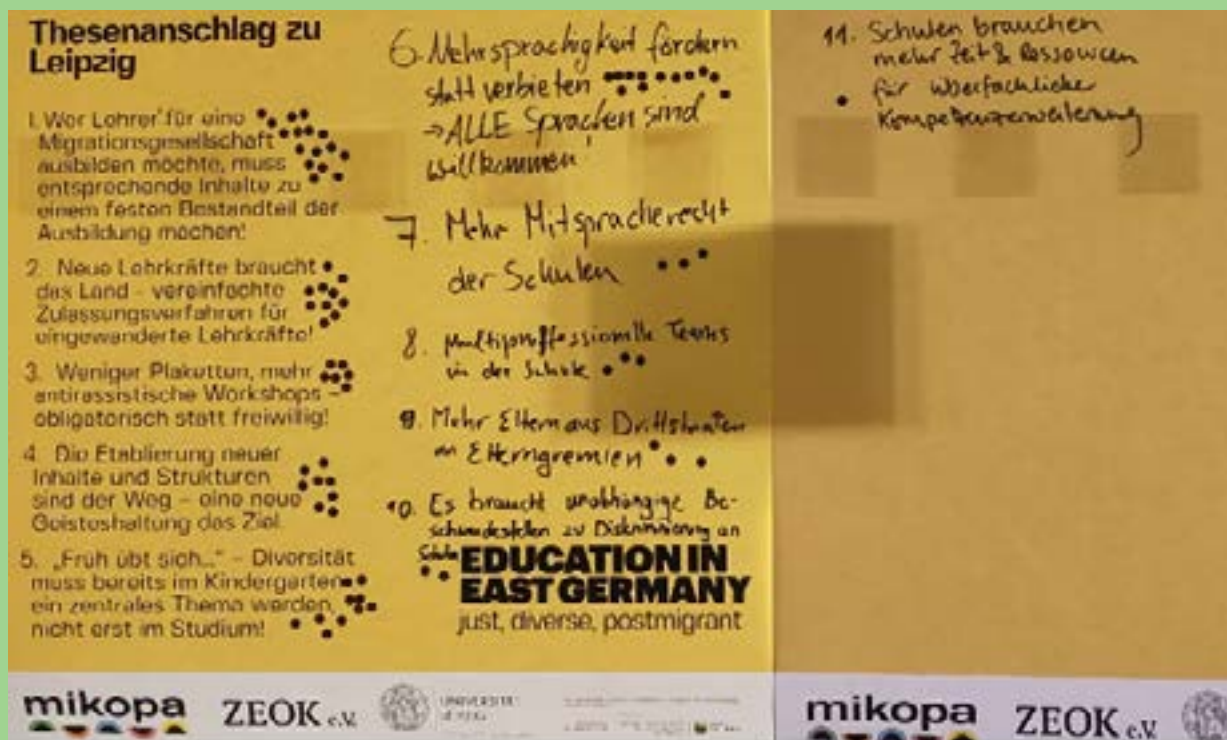 Thesenanschlag zu
Leipzig
1. Wer Lehrer*für eine
Migrationsgesellschaft
ausbilden möchte, muss
entsprechende Inhalte zu
einem festen Bestandteil der
Ausbildung machen!
2. Neue Lehrkräfte braucht
das Land - vereinfachte
Zulassungsverfahren für
eingewanderte Lehrkräfte!
3. Weniger Plaketten, mehr
antirassistische Workshops –
obligatorisch statt freiwillig!
4. Die Etablierung neuer
Inhalte und Strukturen
sind der Weg – eine neue
Geisteshaltung das Ziel.
5. „Früh übt sich...“ – Diversität
muss bereits im Kindergarten
ein zentrales Thema werden,
nicht erst im Studium!
6. Mehrsprachigkeit fördern
statt verbieten
→ ALLE Sprachen sind
willkommen
7. Mehr Mitspracherecht
der Schulen
8. Multiproffessionelle Teams
in der Schule
9. Mehr Eltern aus Drittstaaten
in Elterngremien
10. Es braucht unabhängige Be-
schwerdestellen zu Diskriminierung an
Schulen
EDUCATION IN
EAST GERMANY
just, diverse, postmigrant
mikopa ZEOK e.V. UNIVERSITÄT
LEIPZIG
11. Schulen brauchen
mehr Zeit & Ressourcen
für überfachliche
Kompetenzerweiterung
mikopa ZEOK e.V.